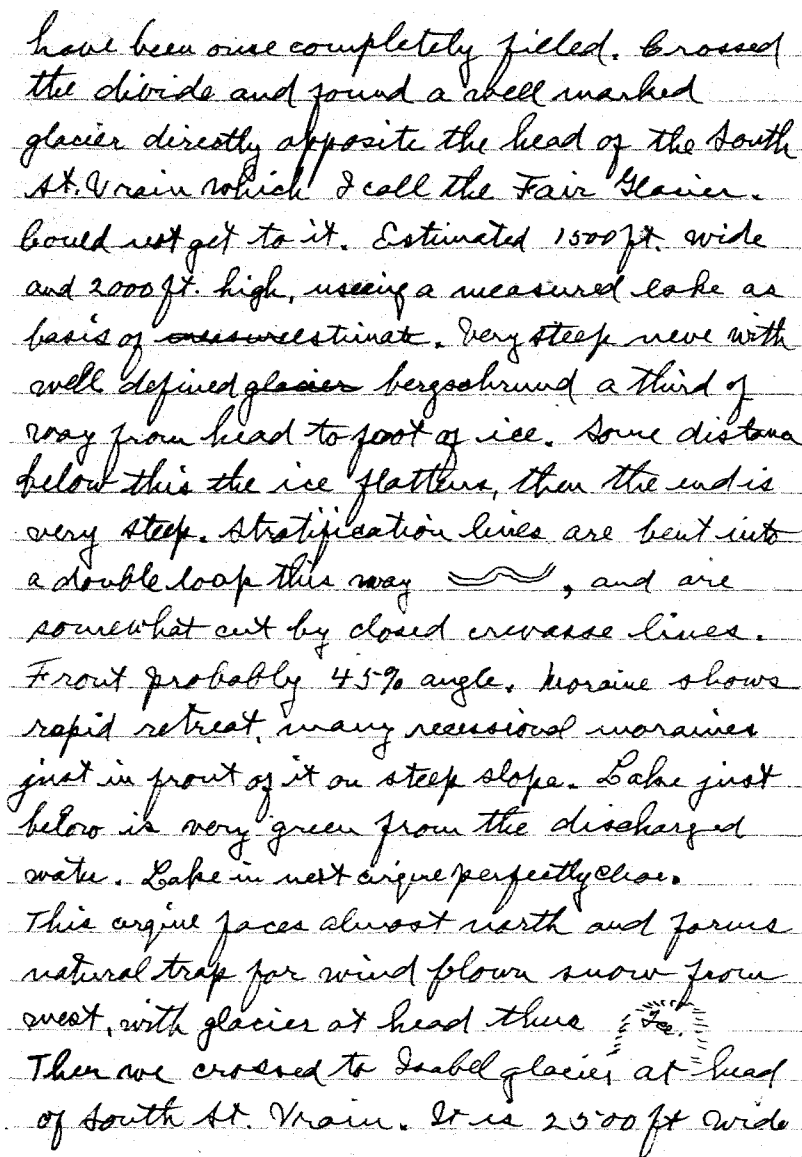 have been once completely filled. Crossed
the divide and found a well marked
glacier directly opposite the head of the South
St. Vrain which I call the Fair Glacier.
Could not get to it. Estimated 1500 ft. wide
and 2000 ft. high, using a measured lake as
basis of measure estimate. Very steep neve with
well defined glacier bergschrund a third of
way from head to foot of ice. Some distance
below this the ice flattens, then the end is
very steep. Stratification lines are bent into
a double loop this way , and are
somewhat cut by closed crevasse lines.
Front probably 45% angle. Moraine shows
rapid retreat, many recessional moraines
just in front of it on steep slope. Lake just
below is very green from the discharged
water. Lake in next cirque perfectly clear.
This cirque faces almost north and forms
natural trap for wind blown snow from
west, with glacier at head thus Ice.
Then we crossed to Isabel glacier at head
of South St. Vrain. It is 2500 ft wide